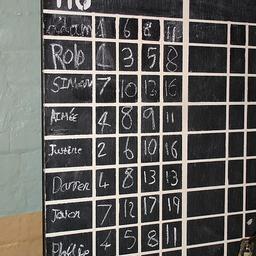 Adam 1 6 8 11
Rob 1 3 5 8
SIMON 7 10 13 16
AIMÉE 4 8 9 11
Justine 2 6 10 16
Darren 4 8 13 13
Jason 7 12 17 19
Phillip 4 5 8 11